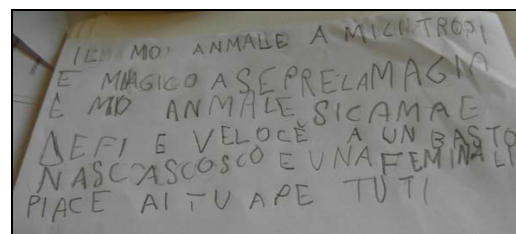 IL MIO ANMALE A MILNTROPI
E MAGICO A SEPRE LA MAGIA
E MIO ANMALE SICAMA E
DEFI E VELOCE A UN BASTO
NASCOSCO E UNA FEMINA LI
PIACE AITU APE TUTI